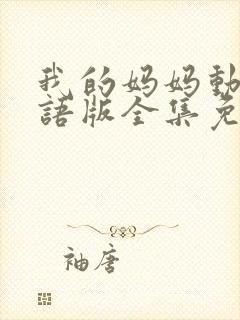 我的妈妈動
語版全集免
袖唐